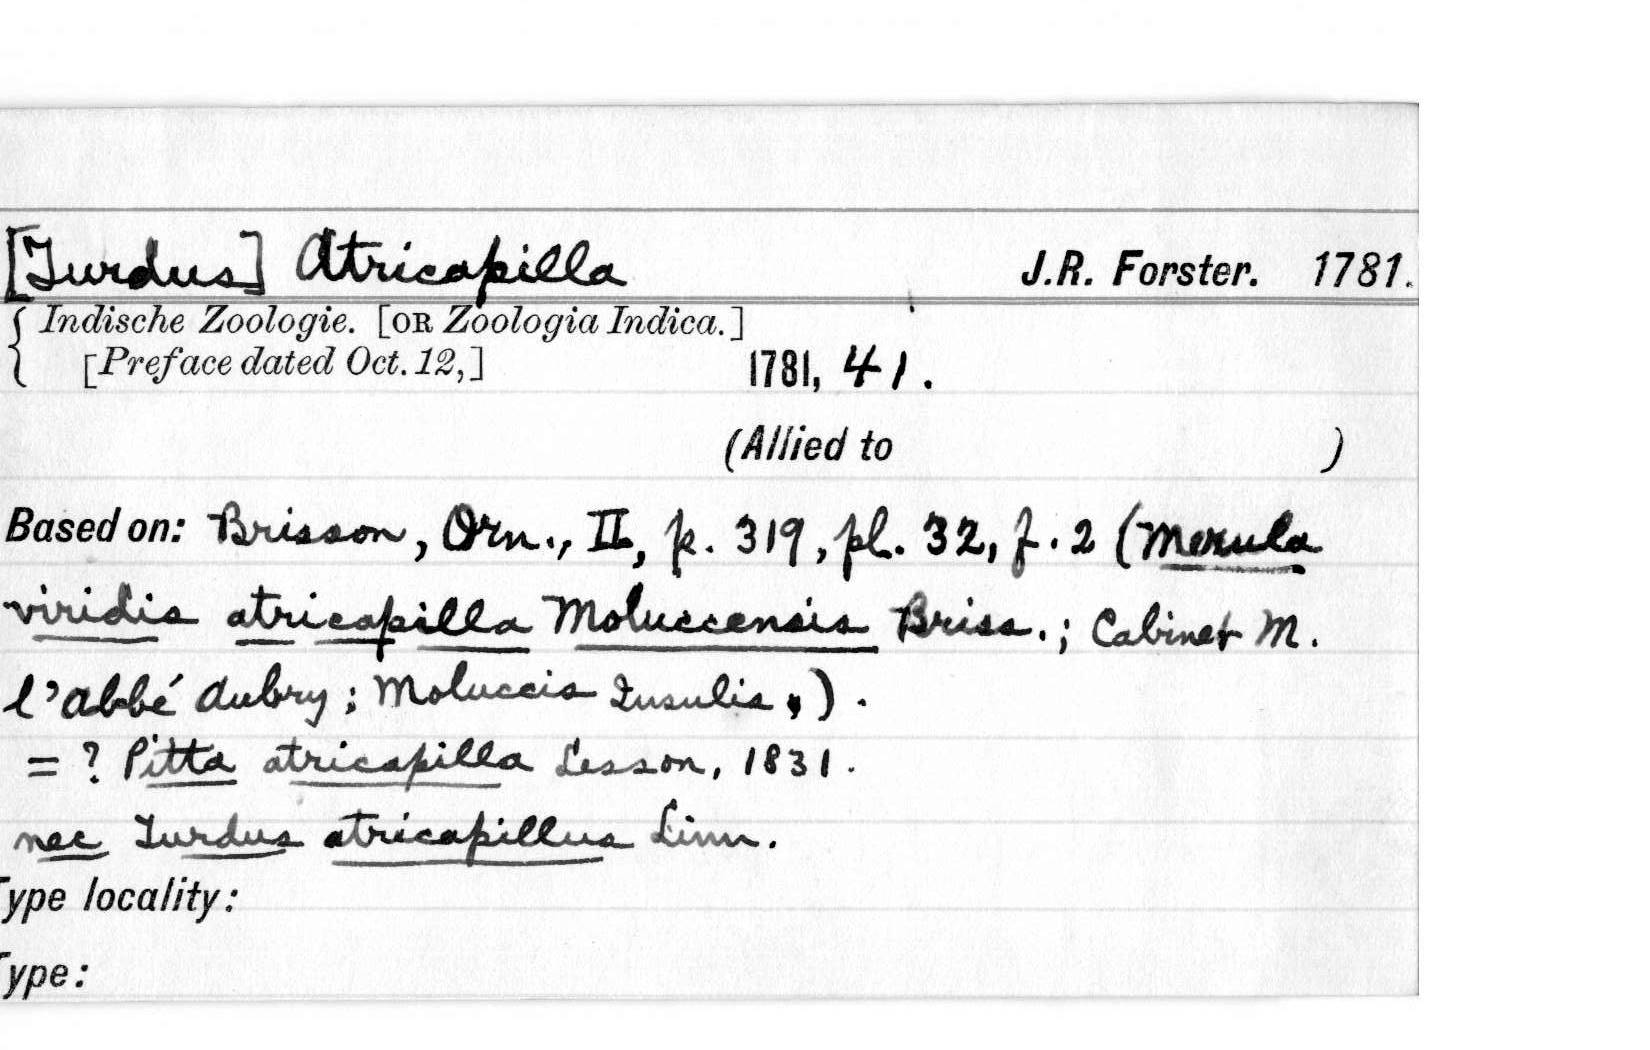 [Turdus] Atricapilla J.R. Forster. 1781.
{ Indische Zoologie. [OR Zoologia Indica.]
[Preface dated Oct. 12,] 1781, 41.
(Allied to )
Based on: Brisson, Orn., II, p. 319, pl. 32, f. 2 (Merula
viridis atricapilla Moluccensis Briss.; Cabinet M.
l'abbé Aubry; Moluccis Insulis,).
= ? Pitta atricapilla Lesson, 1831.
nec Turdus atricapillus Linn.
Type locality:
Type: